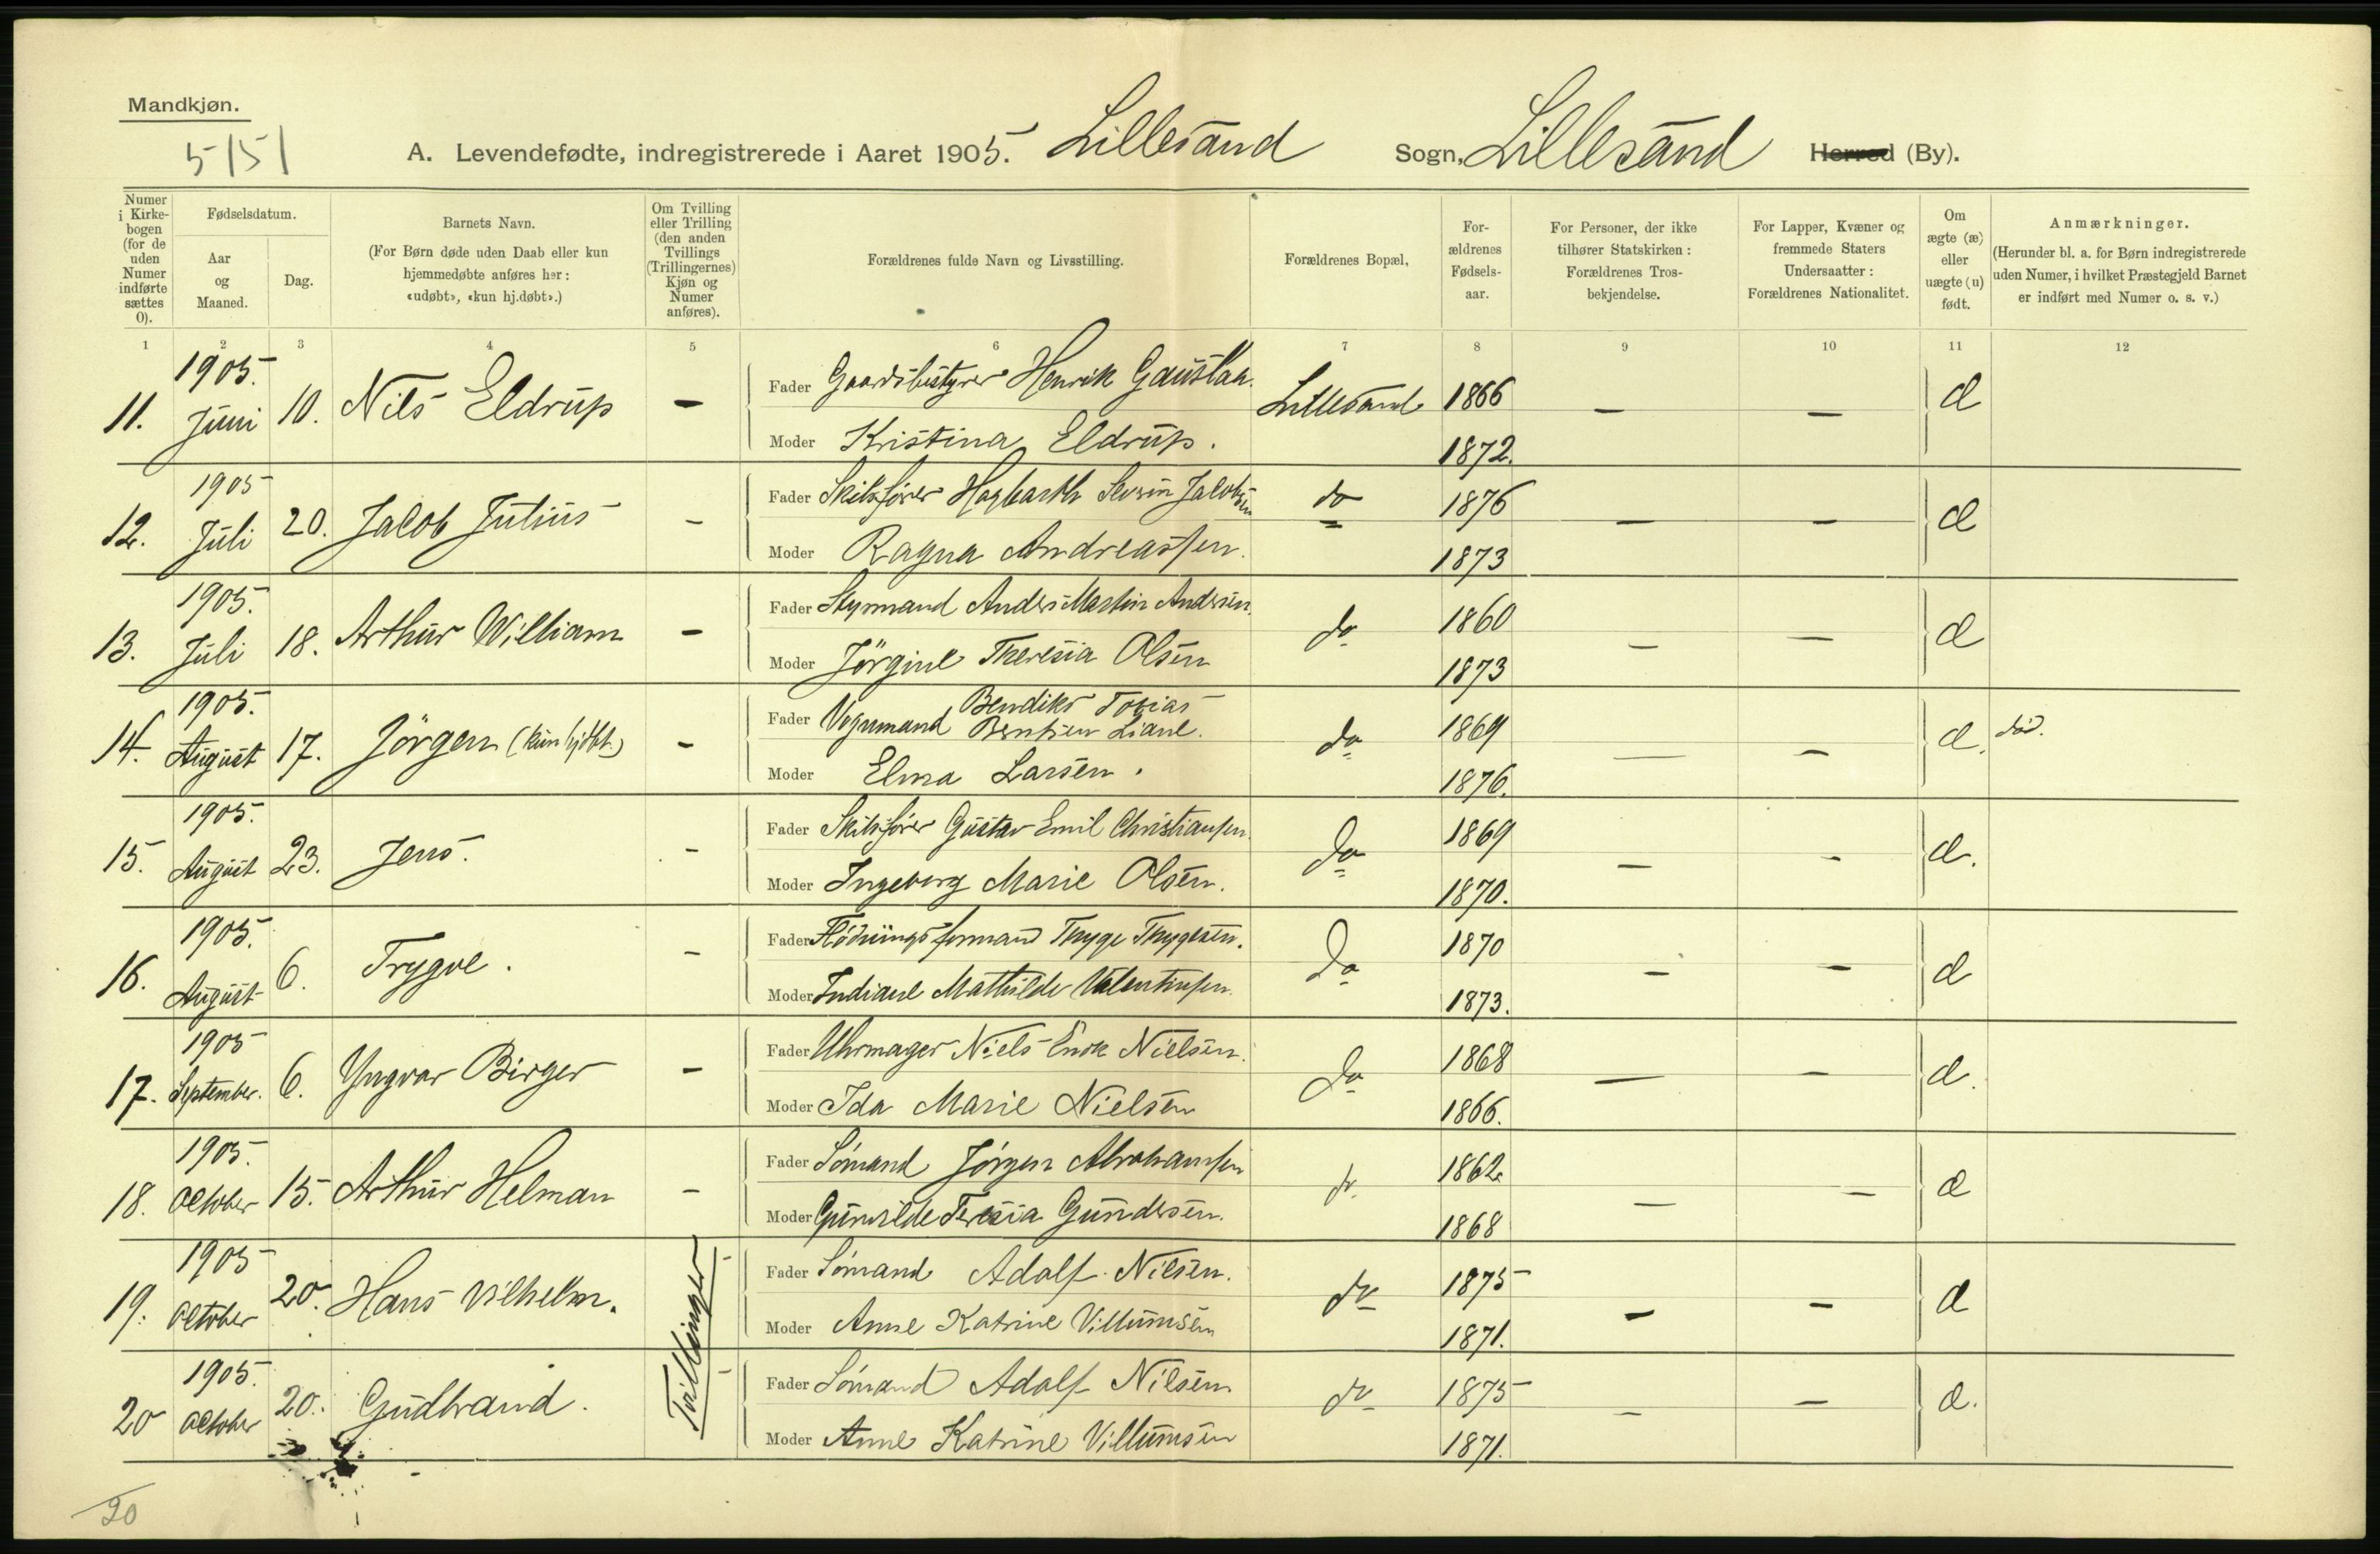 Mandkjøn.
5/5 |
A. Levendefødte, indregistrerede i Aaret 1905. Lillesand Sogn, Lillesand Herred (By).
Numer i Kirke-bogen (for de uden Numer indførte sættes 0).
Fødselsdatum.
Aar og Maaned.
Dag.
Barnets Navn.
(For Børn døde uden Daab eller kun hjemmedøbte anføres her: «udøbt», «kun hj.døbt».)
Om Tvilling eller Trilling (den anden Tvillings (Trillingernes) Kjøn og Numer anføres).
Forældrenes fulde Navn og Livsstilling.
Forældrenes Bopæl,
For-ældrenes Fødsels-aar.
For Personer, der ikke tilhører Statskirken: Forældrenes Tros-bekjendelse.
For Lapper, Kvæner og fremmede Staters Undersaatter: Forældrenes Nationalitet.
Om ægte (æ) eller uægte (u) født.
Anmærkninger.
(Herunder bl. a. for Børn indregistrerede uden Numer, i hvilket Præstegjeld Barnet er indført med Numer o. s. v.)
1 2 3 4 5 6 7 8 9 10 11 12
11. 1905. Juni 10. Nils Eldrup - Fader Gaardsbestyrer Henrik Lillesand 1866 — — æ
Moder Kristina Eldrup. 1872.
12. 1905 Juli 20. Jacob Julius - Fader Skibsfører Hagbarth Severin Jacobsen do 1876 — — æ
Moder Ragna Andreassen. 1873
13. 1905. Juli 18. Arthur William - Fader Styrmand Anders Martin Andersen. do 1860 — — æ
Moder Jörgine Theresia Olsen 1873
14. 1905. August 17. Jörgen (kun hjdbt.) - Fader Vognmand Bendiks Tobias Berntsen Liane. do 1869 — — æ. död.
Moder Elma Larsen. 1876.
15. 1905. August 23. Jens. - Fader Skibsfører Gustav Emil Christiansen. do 1869 — - æ.
Moder Ingeborg Marie Olsen. 1870.
16. 1905. August 6. Trygve. - Fader Flödningsformand Thyge Thygesen. do 1870 — — æ
Moder Indiane Mathilde Valentinsen. 1873.
17. 1905 September. 6. Yngvar Birger - Fader Uhrmager Niels Enok Nielsen. do 1868 — — æ.
Moder Ida Marie Nielsen 1866.
18. 1905. October 15. Arthur Helman - Fader Sömand Jörgen Abrahamsen do. 1862 — — æ
Moder Gunvilde Teresia Gundersen. 1868
19. 1905 October 20. Hans Vilhelm. Tvillinger - Fader Sömand Adolf Nilsen. do 1875 — — æ
Moder Anne Katrine Villumsen 1871.
20 1905. October 20. Gudbrand. - Fader Sömand Adolf Nilsen do 1875 — — æ.
Moder Anne Katrine Villumsen 1871.
20